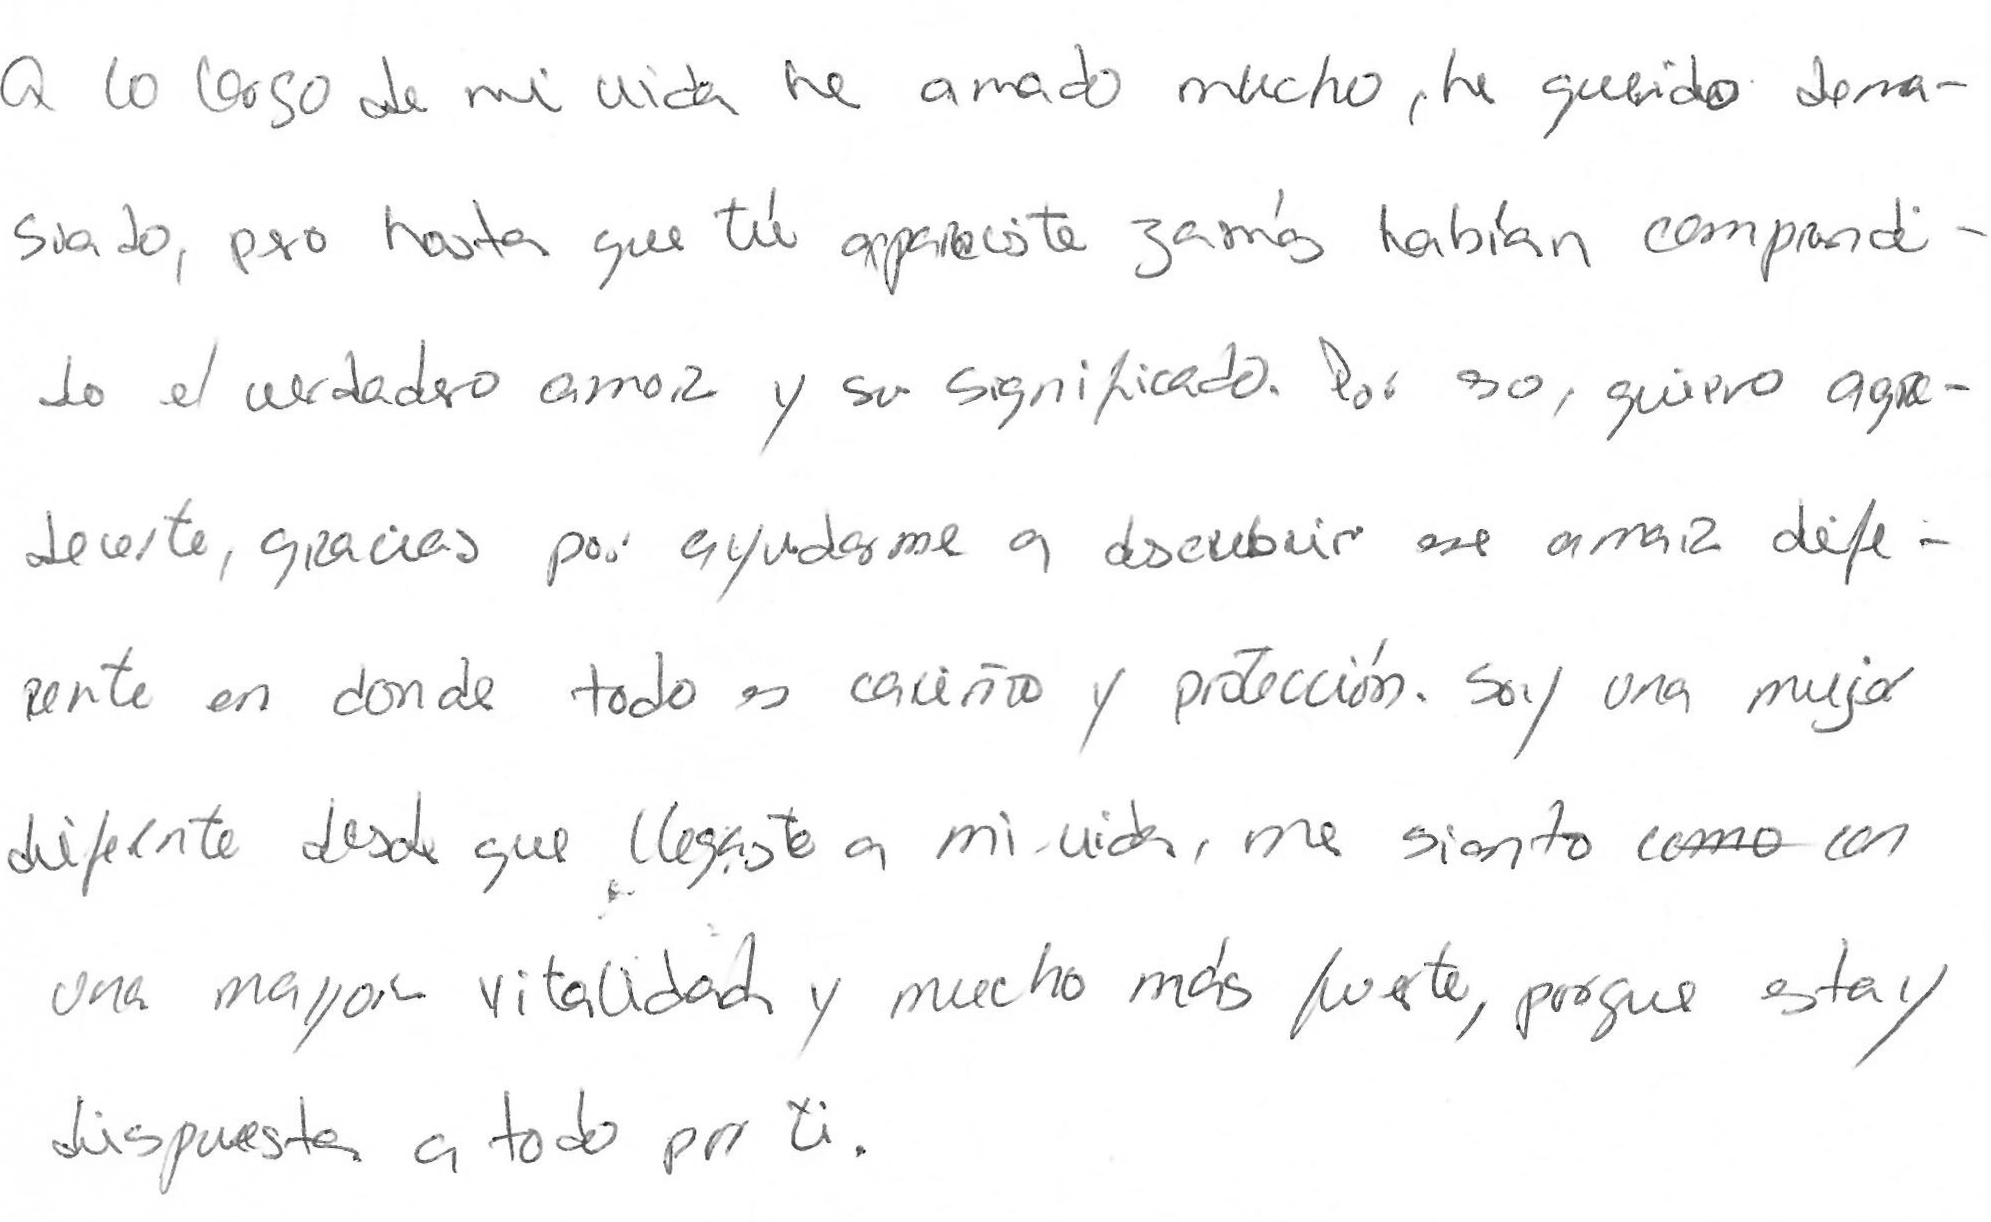 A lo largo de mi vida he amado mucho, he querido dema-
siado, pero hasta que tú apareciste jamás habían comprendi-
do el verdadero amor y su significado. Por eso, quiero agra-
decerte, gracias por ayudarme a descubrir ese amor dife-
rente en donde todo es cariño y protección. Soy una mujer
diferente desde que llegaste a mi vida, me siento como con
una mayor vitalidad y mucho más fuerte, porque estoy
dispuesta a todo por ti.